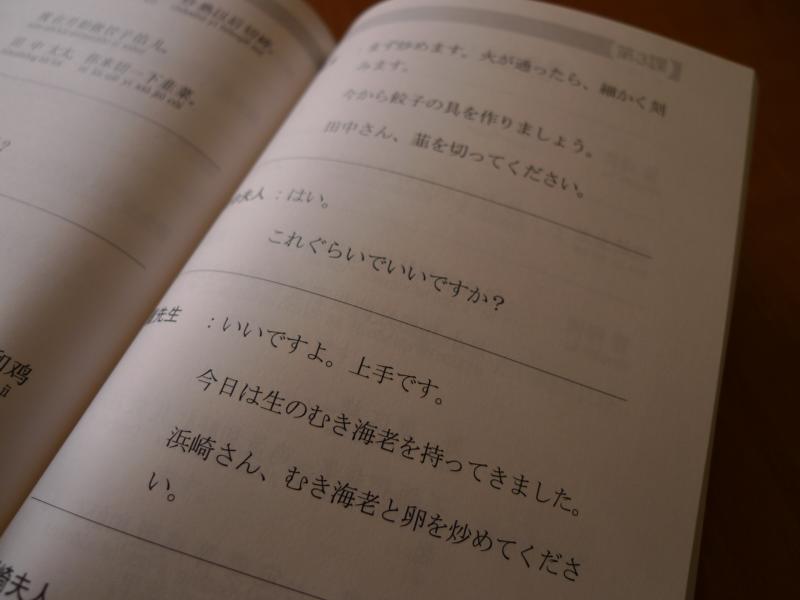 田中太太，你来切一下韭菜。
鸡
jī
第3課
まず炒めます。火が通ったら、細かく刻
みます。
今から餃子の具を作りましょう。
田中さん、韮を切ってください。
夫人：はい。
これぐらいでいいですか？
先生：いいですよ。上手です。
今日は生のむき海老を持ってきました。
浜崎さん、むき海老と卵を炒めてくださ
い。
崎夫人